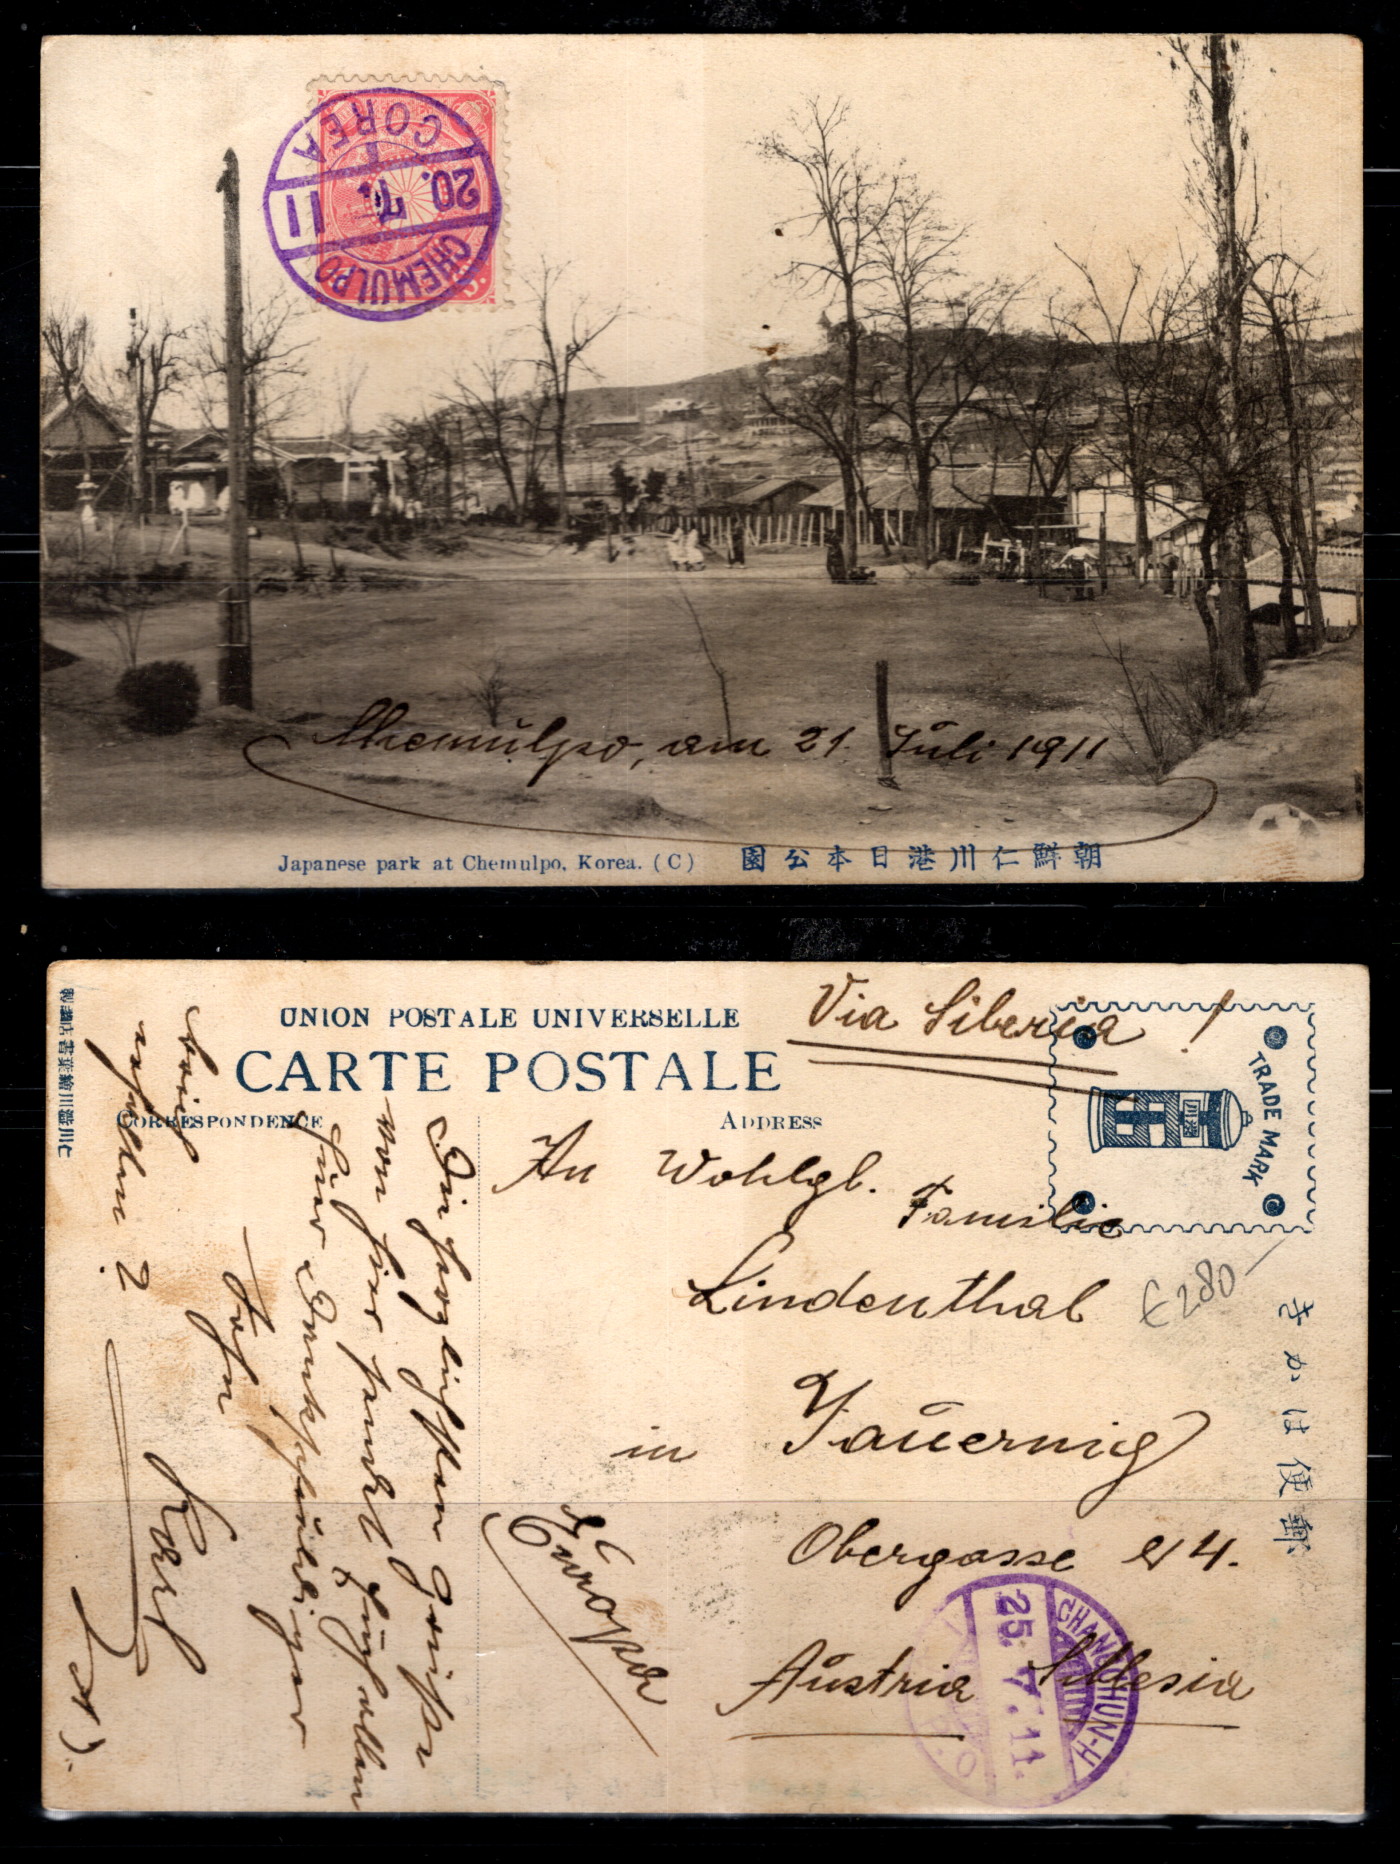 COREA
20. 7. 11
CHEMULPO
Chemulpo, am 21. Juli 1911
Japanese park at Chemulpo, Korea. (C)
園公本日港川仁鮮朝
Via Siberia !
UNION POSTALE UNIVERSELLE
CARTE POSTALE
CORRESPONDENCE
ADDRESS
TRADE MARK
An Wohlgb.
Familie
Lindenthal
in Jauernig
Obergasse 4.
Austria Silesia
Europa
€280-
きかは便郵
Die herzlichsten Grüße
von hier sendet Euch allen
Euer Dankschuldiger
Sohn
Karl
Brief
erhalten ?
CHANGCHUN-H
25. 7. 11.
P. O